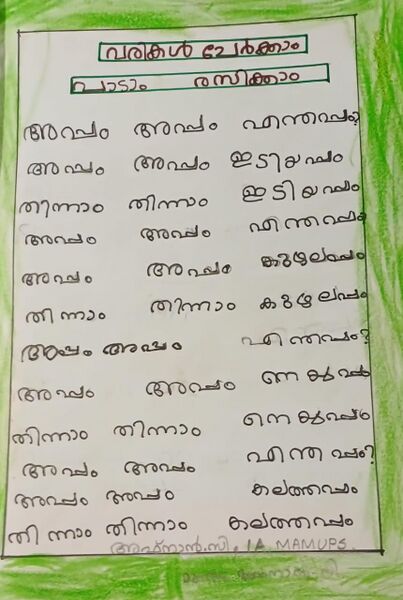 വരികൾ ചേർക്കാം
പാടാം രസിക്കാം
അപ്പം അപ്പം എന്തപ്പം?
അപ്പം അപ്പം ഇടിയപ്പം
തിന്നാം തിന്നാം ഇടിയപ്പം
അപ്പം അപ്പം എന്തപ്പം
അപ്പം അപ്പം കുഴലപ്പം
തിന്നാം തിന്നാം കുഴലപ്പം
അപ്പം അപ്പം എന്തപ്പം?
അപ്പം അപ്പം
തിന്നാം തിന്നാം നെയ്യപ്പം
അപ്പം അപ്പം എന്തപ്പം?
അപ്പം അപ്പം കലത്തപ്പം
തിന്നാം തിന്നാം കലത്തപ്പം
അഫ്നാൻ.സി, 1A MAMUPS.